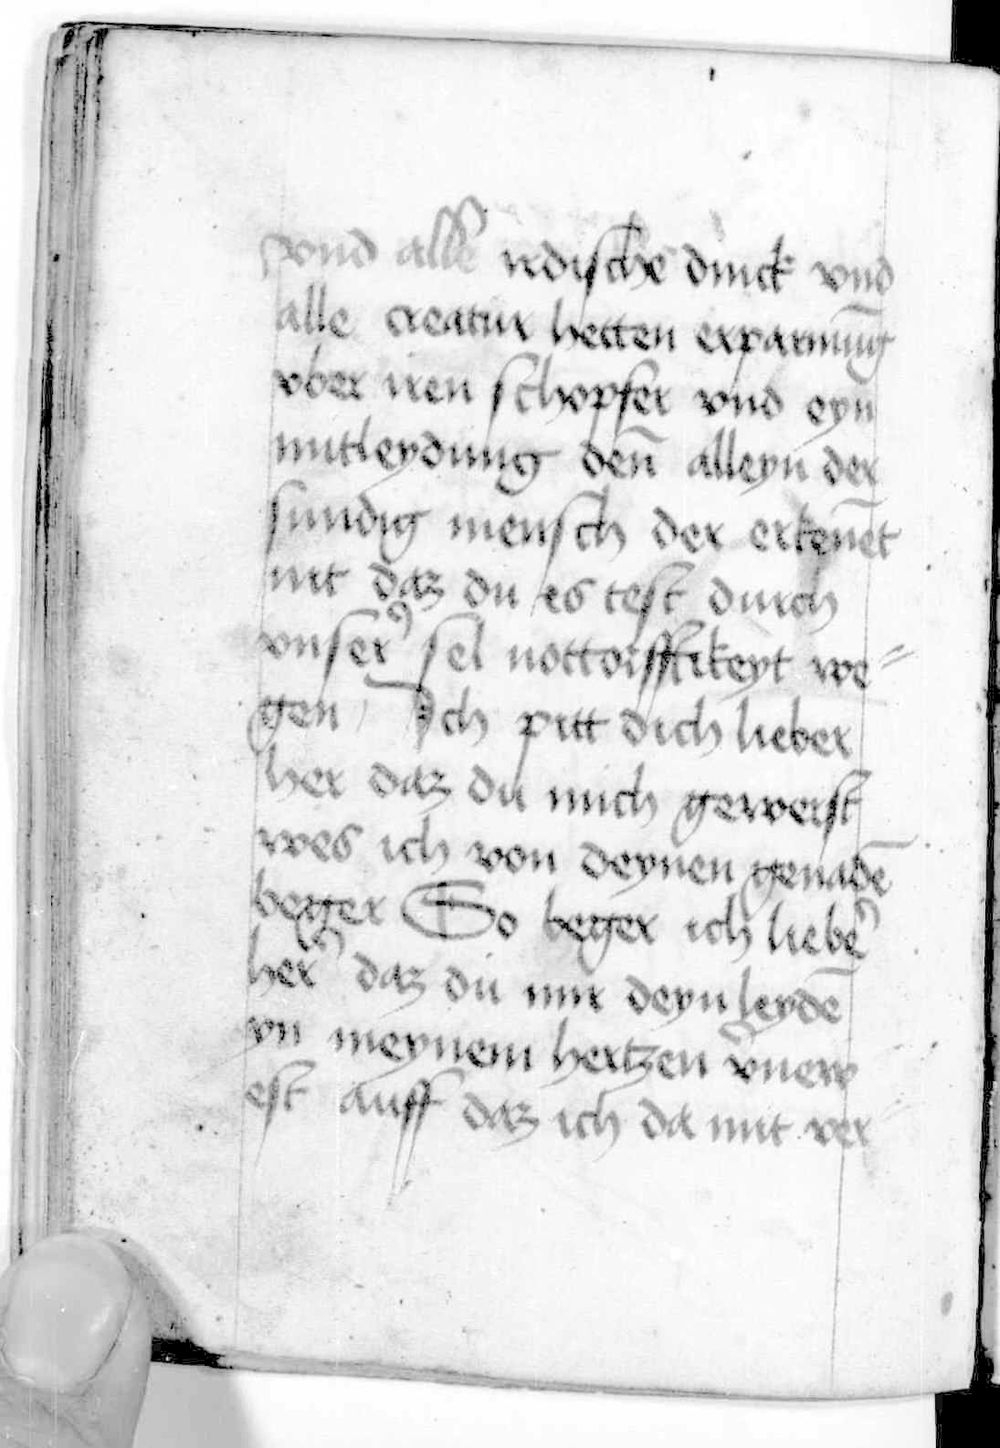 vnd alle irdische dinck vnd
alle creatur hetten erparmūg
vber iren schopfer vnd eyn
mitleydung den̄ alleyn der
sundig mensch der erken̄et
nit daz du es test durch
vnser sel nottorfftikeyt we⸗
gen / Ich pitt dich lieber
her daz du mich gewerst
wes ich von deynen genadē
beger So beger ich lieber
her daz du mir deyn leydē
yn meynem hertzen vernew
est auff daz ich da mit ver